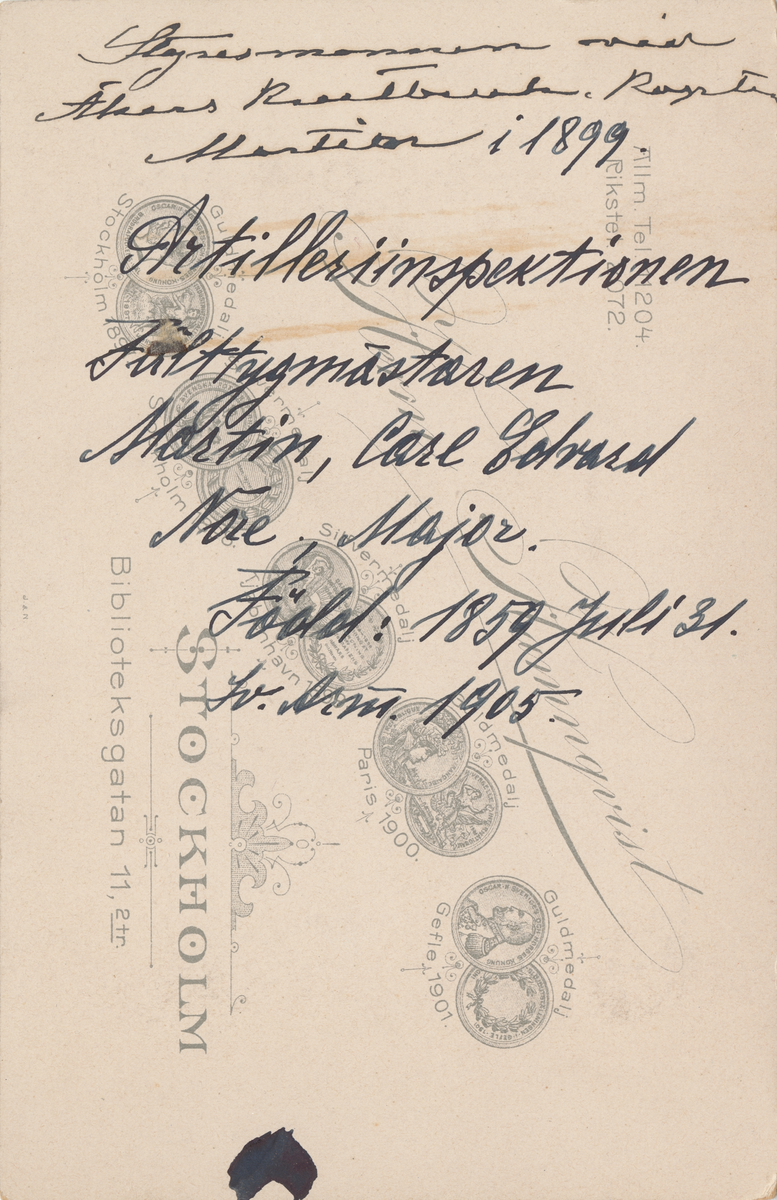 Styresmannen vid
Åkers
i 1899.
Artilleriinspektionen
Fälttygmästaren
Martin, Carl Edvard
Nore, Major.
Född: 1859 Juli 31.
Sv. Arm. 1905.
Allm. Tel. 204.
Rikstel. 72.
Florman
Stockholm
Guldmedalj
Stockholm
Silfvermedalj
Kjöbenhavn
Guldmedalj
Paris 1900.
Guldmedalj
Gefle 1901.
STOCKHOLM
Biblioteksgatan 11, 2tr.